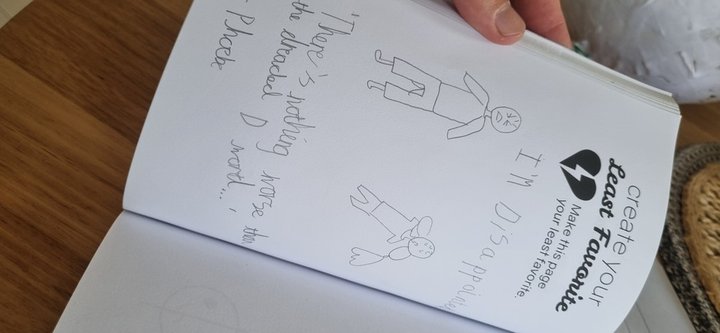 create your
Least Favorite
Make this page
your least favorite.
I'm Disappointed
"There is nothing worse than
the dreaded D word..."
- Phoebe